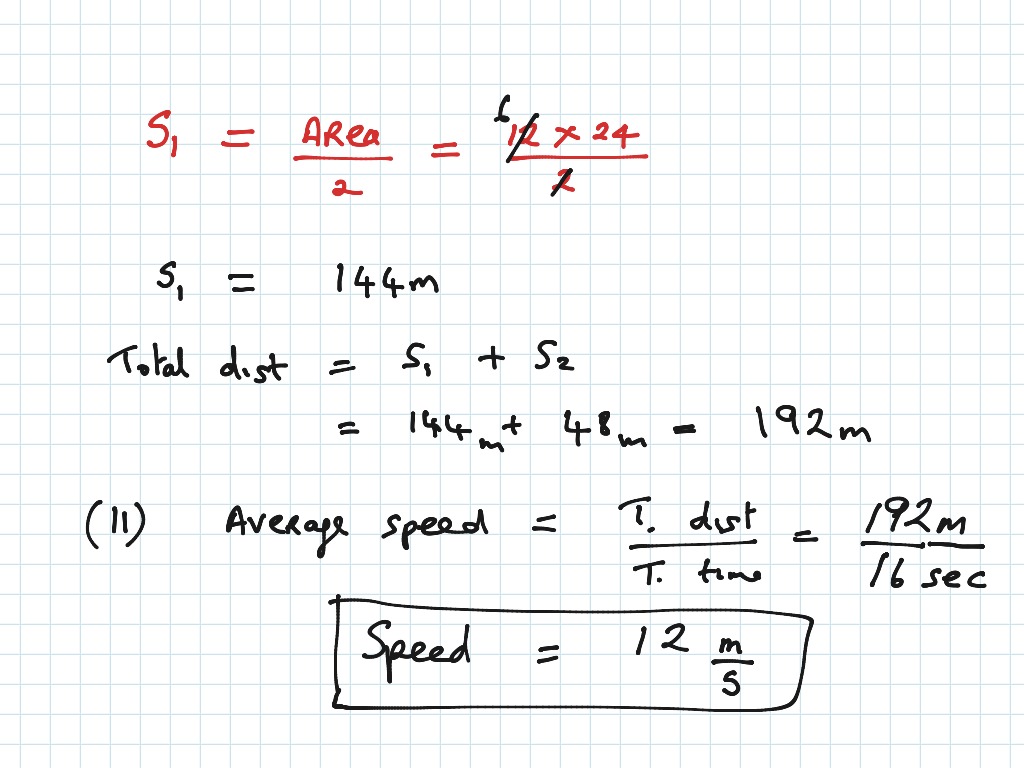 S₁ = ARea/2 = 6 12 × 24/2
S₁ = 144m
Total dist = S₁ + S₂
= 144m + 48m = 192m
(II) Average speed = T. dist/T. time = 192m/16 sec
Speed = 12 m/s